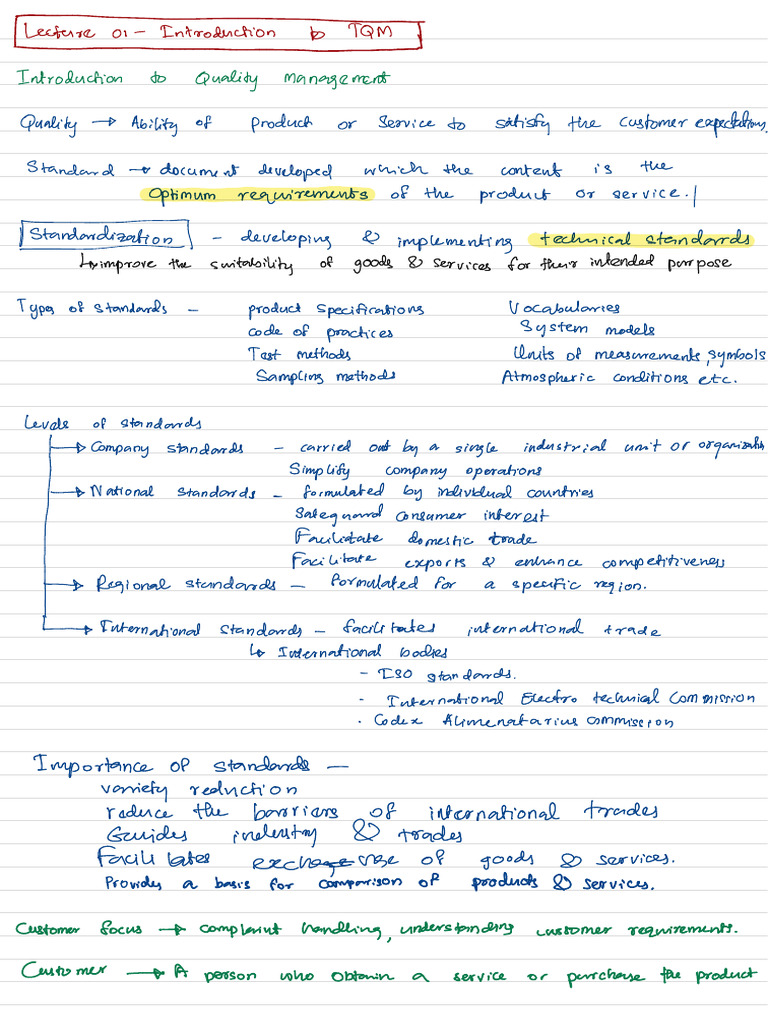 Lecture 01 - Introduction to TQM
Introduction to Quality management
Quality → Ability of product or service to satisfy the customer expectations.
Standard → document developed which the content is the
Optimum requirements of the product or service.
Standardization - developing & implementing technical standards
↳ improve the suitability of goods & services for their intended purpose
Types of standards - product specifications Vocabularies
code of practices System models
Test methods Units of measurements, symbols
Sampling methods Atmospheric conditions etc.
Levels of standards
→ Company standards - carried out by a single industrial unit or organization
Simplify company operations
→ National standards - formulated by individual countries
Safeguard consumer interest
Facilitate domestic trade
Facilitate exports & enhance competitiveness
→ Regional standards - formulated for a specific region.
→ International standards - facilitates international trade
↳ International bodies
- ISO standards.
- International Electro technical Commission
- Codex Alimenatarius commission
Importance of standards -
variety reduction
reduce the barriers of international trades
Guides industry & trades
Facilitates of goods & services.
Provides a basis for comparison of products & services.
Customer focus → complaint handling, understanding customer requirements.
Customer → A person who obtain a service or purchase the product